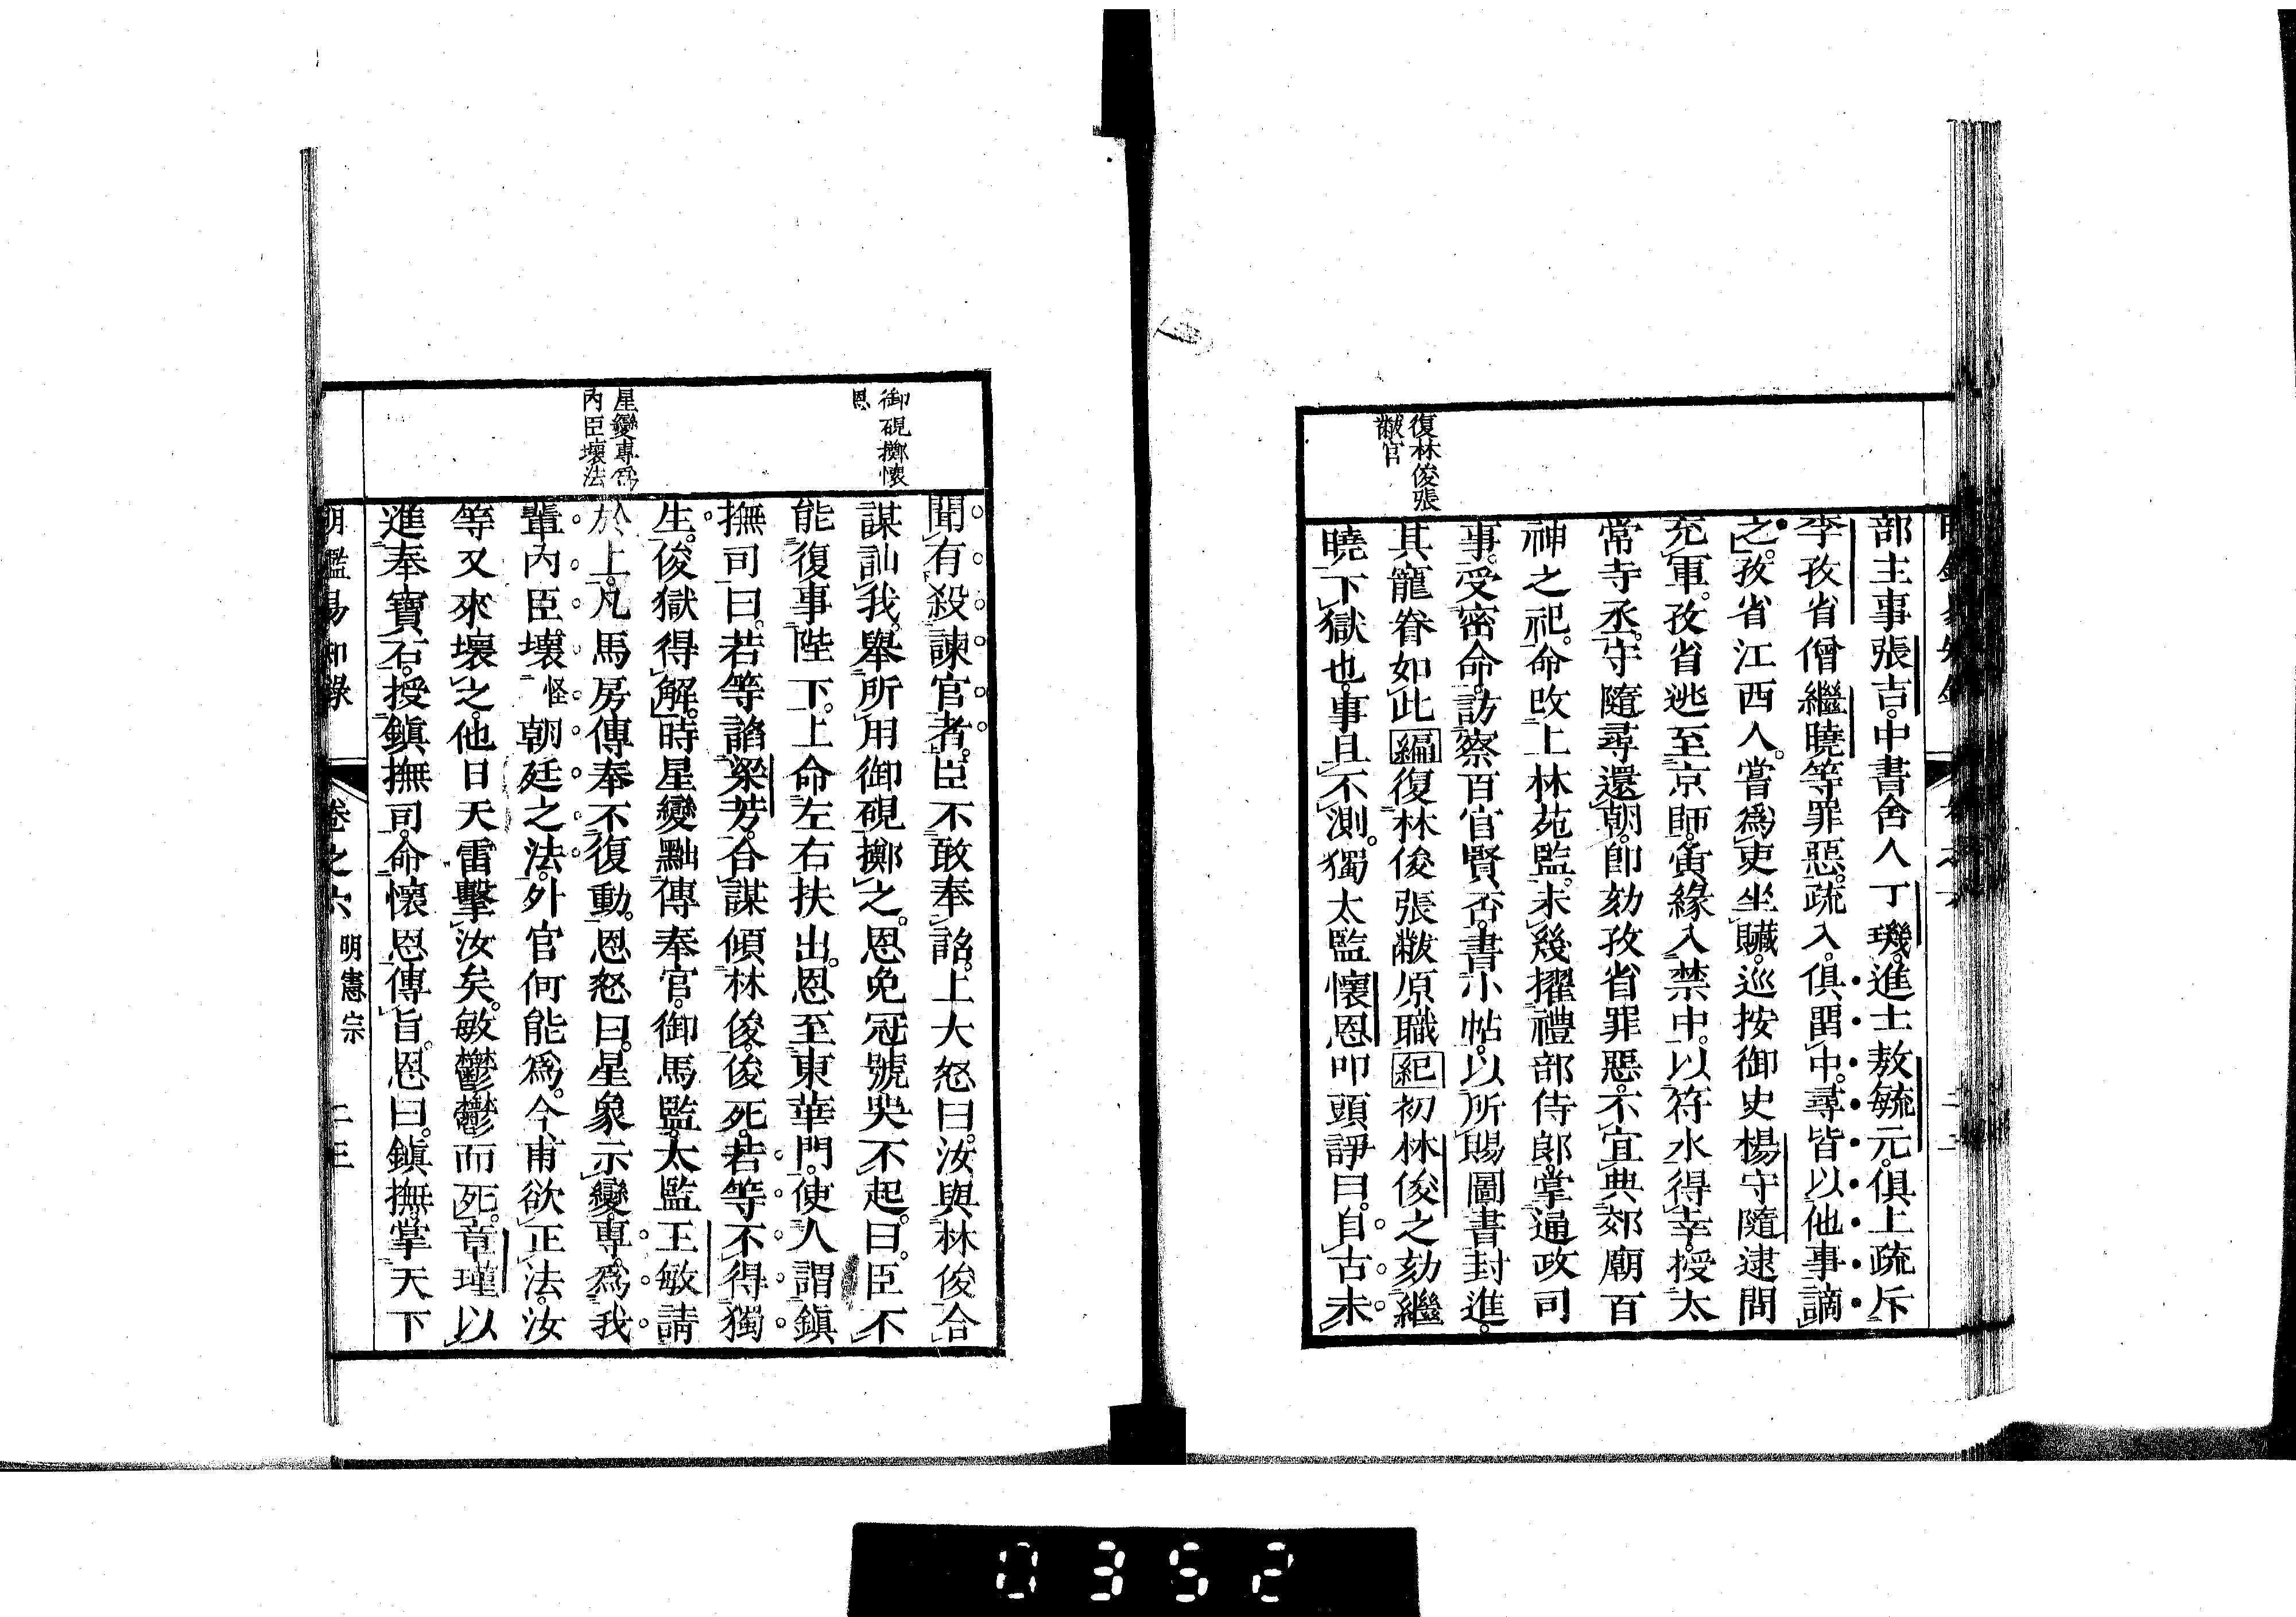 部主事張吉。中書舍人丁璣。進士敖毓元。俱上疏斥
李孜省僧繼曉等罪惡。疏入。俱畱中。尋皆以他事謫
之。孜省江西人。嘗爲吏坐贓。巡按御史楊守隨逮問
充軍。孜省逃至京師。夤緣入禁中。以符水得幸。授太
常寺丞。守隨尋還朝。卽劾孜省罪惡。不宜典郊廟百
神之祀。命改上林苑監。未幾擢禮部侍郎。掌通政司
事。受密命。訪察百官賢否。書小帖。以所賜圖書封進。
復林俊張
黻官
其寵眷如此編復林俊張黻原職紀初林俊之劾繼
曉下獄也。事且不測。獨太監懷恩叩頭諍曰。自古未
聞有殺諫官者。臣不敢奉詔。上大怒曰。汝與林俊合
御硯擲懷
恩
謀訕我。舉所用御硯擲之。恩免冠號哭不起。曰。臣不
能復事陛下。上命左右扶出。恩至東華門。使人謂鎭
撫司曰。若等諂梁芳。合謀傾林俊。俊死。若等不得獨
生。俊獄得解。時星變黜傳奉官。御馬監太監王敏請
星變專爲
內臣壞法
於上。凡馬房傳奉不復動。恩怒曰。星象示變。專爲我
輩內臣壞怪朝廷之法。外官何能爲。今甫欲正法。汝
等又來壞之。他日天雷擊汝矣。敏鬱鬱而死。章瑾以
進奉寶石。授鎭撫司。命懷恩傳旨。恩曰。鎭撫掌天下
明鑑易知錄 卷之六 明憲宗 二三
0352